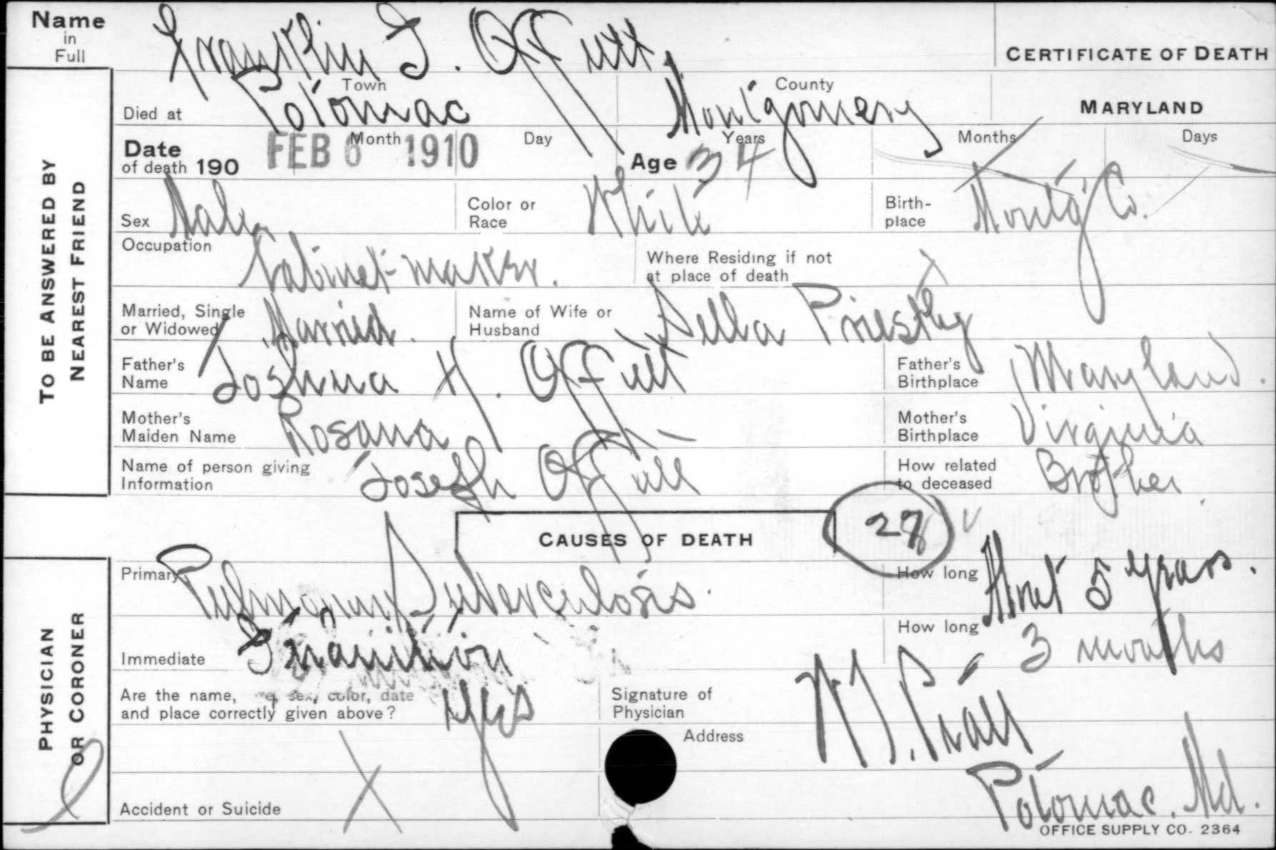 Name in Full Franklin T. Offutt
CERTIFICATE OF DEATH
Died at Town Potomac County Montgomery MARYLAND
Date of death 190 Month Day FEB 6 1910 Age Years 34 Months Days
Sex Male Color or Race White Birthplace Montg Co.
Occupation Cabinet-maker. Where Residing if not at place of death
Married, Single or Widowed Married. Name of Wife or Husband Della Priestly
Father's Name Joshua H. Offutt Father's Birthplace Maryland.
Mother's Maiden Name Rosana — Mother's Birthplace Virginia
Name of person giving Information Joseph Offutt How related to deceased Brother
TO BE ANSWERED BY NEAREST FRIEND
CAUSES OF DEATH
Primary Pulmonary Tuberculosis. How long About 5 years.
Immediate Inanition How long 3 months
Are the name, age, sex, color, date and place correctly given above? Yes Signature of Physician W.T. Pratt
Address Potomac. Md.
Accident or Suicide X
PHYSICIAN OR CORONER
OFFICE SUPPLY CO. 2364